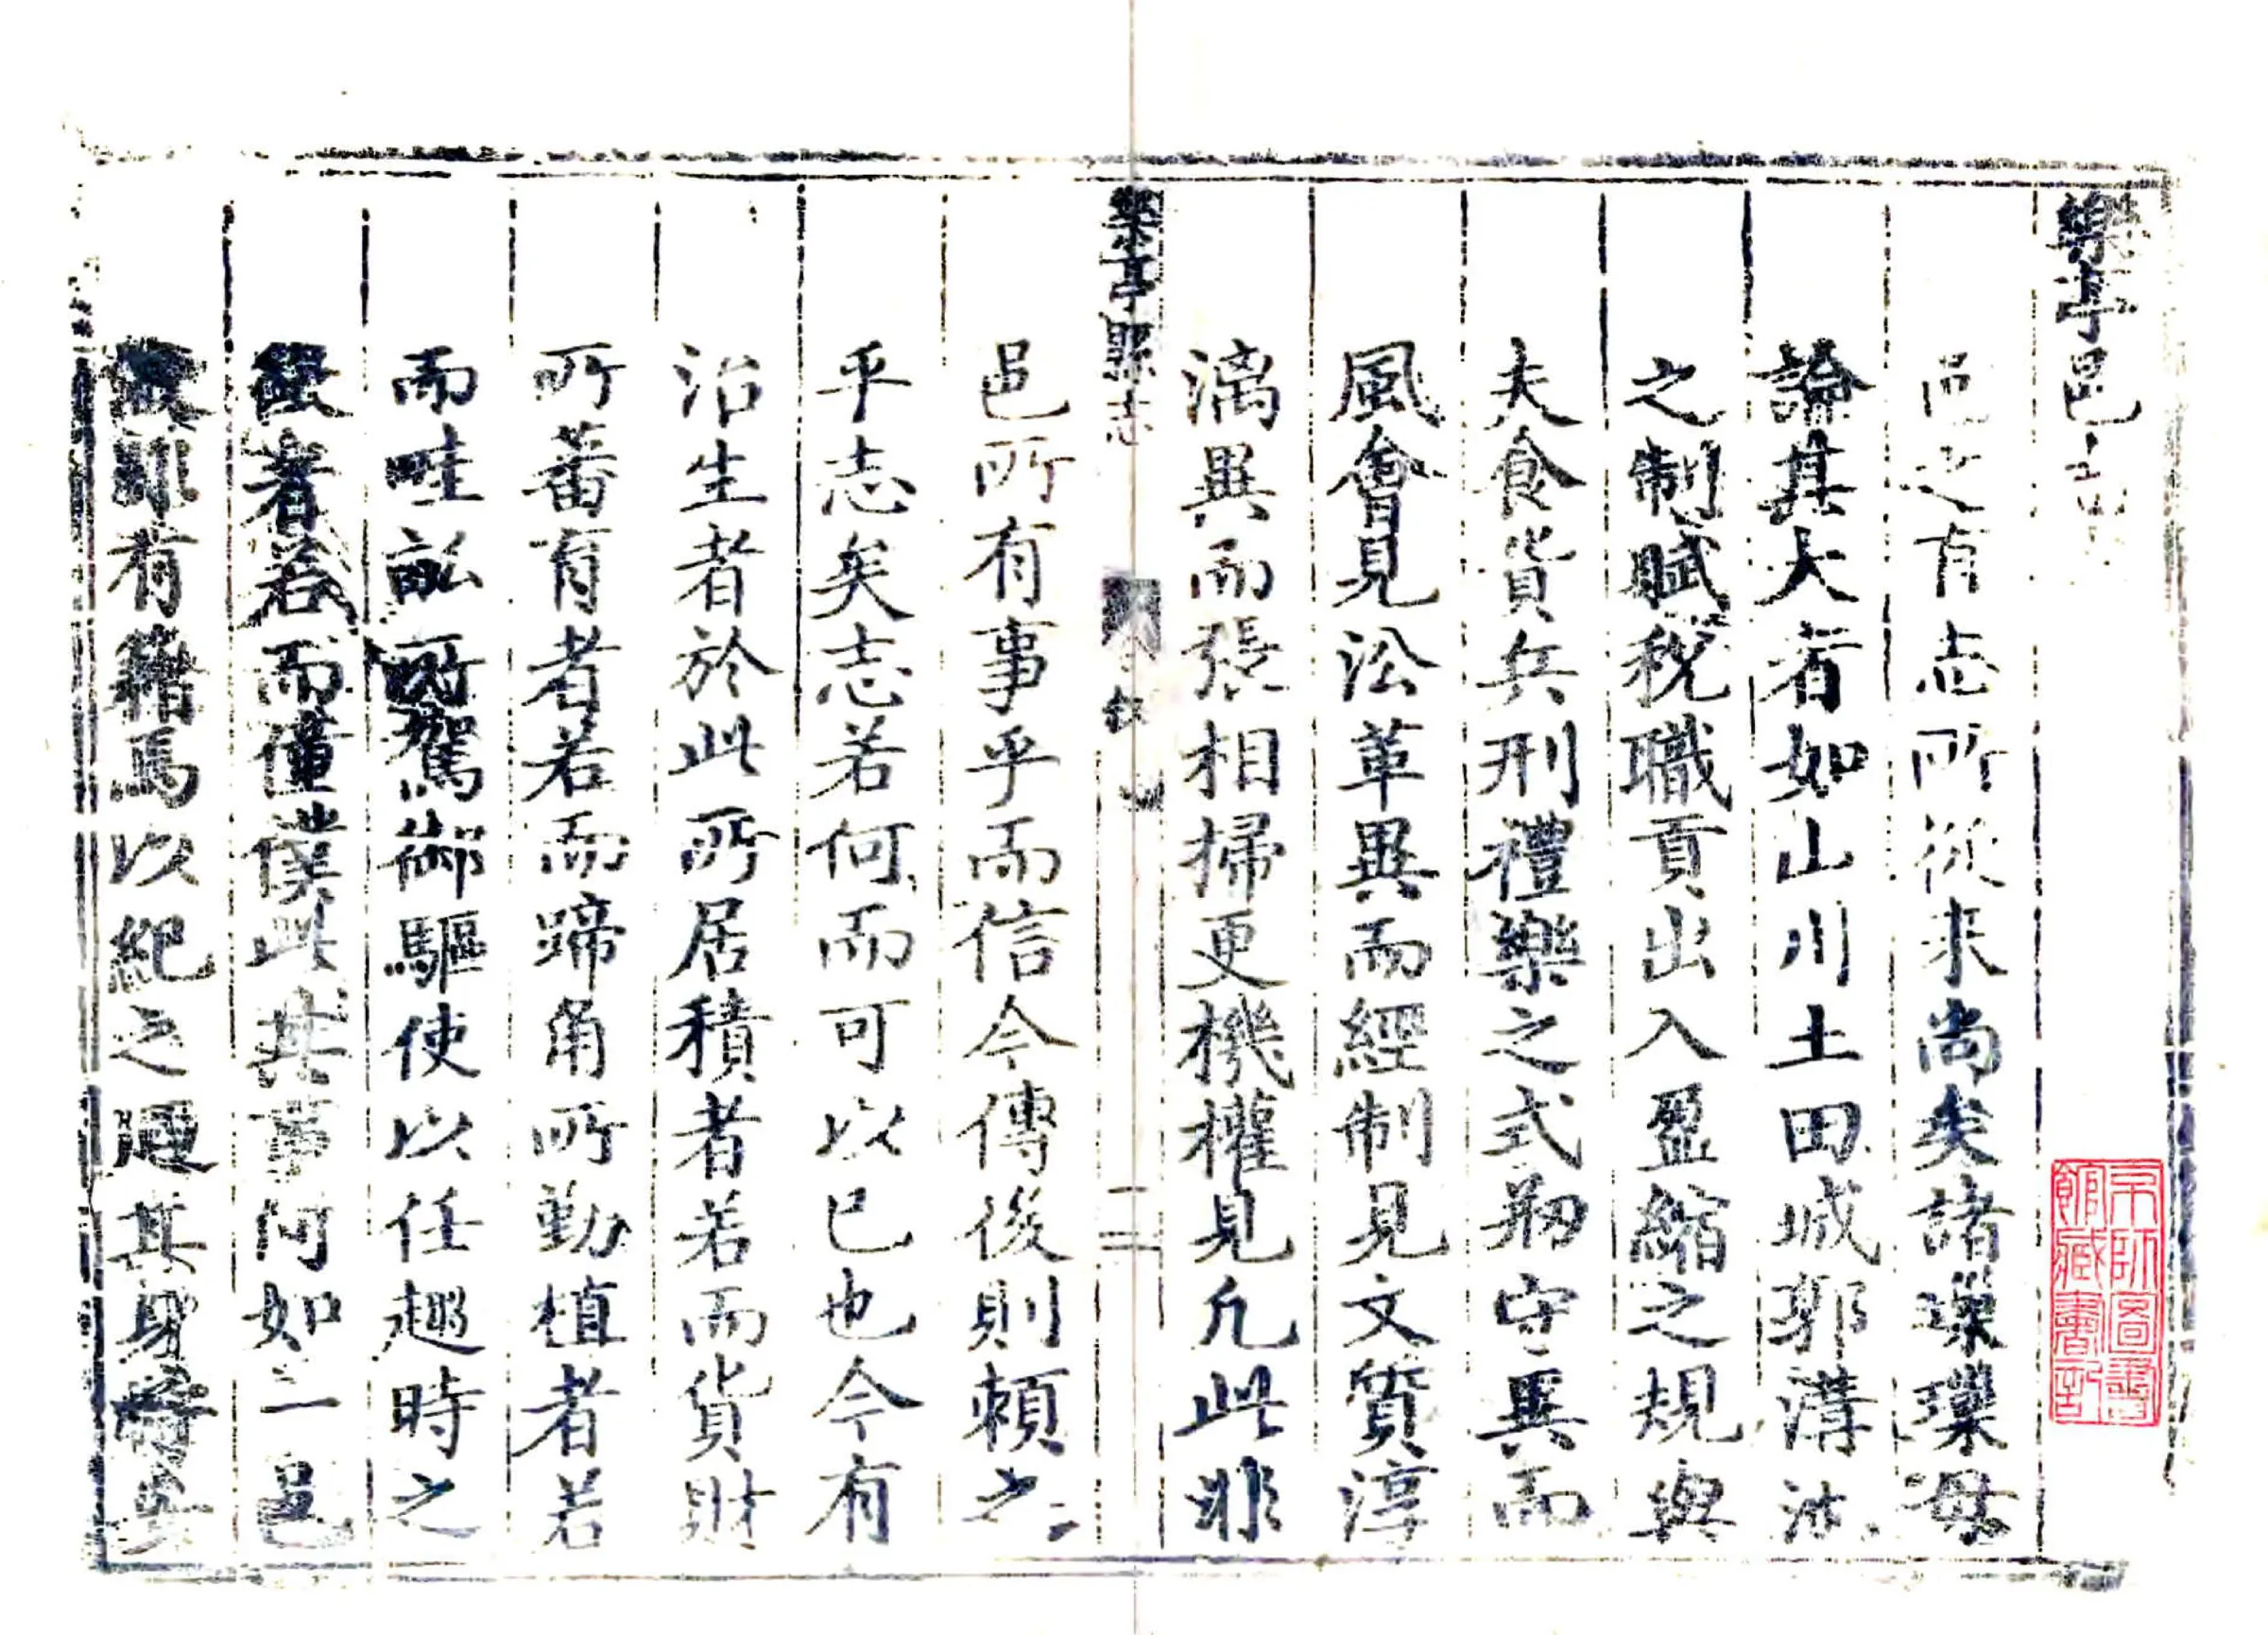 樂亭邑
邑之有志所從來尚矣諸瑣瑣毋
論其大者如山川土田城郭溝洫
之制賦稅職貢出入盈縮之規與
夫食貨兵刑禮樂之式刱守異而
風會見㳂革異而經制見文質淳
漓異而張相掃更機權見凡此非
樂亭縣志
二
邑所有事乎而信今傳後則賴之
乎志矣志若何而可以已也今有
治生者於此所居積者若而貨財
所蕃育者若而蹄角所勤植者若
而畦畝所駕御驅使以任趨時之
者若而僮僕此其事何如一邑
非有籍焉以紀之
京師圖書
館藏書記